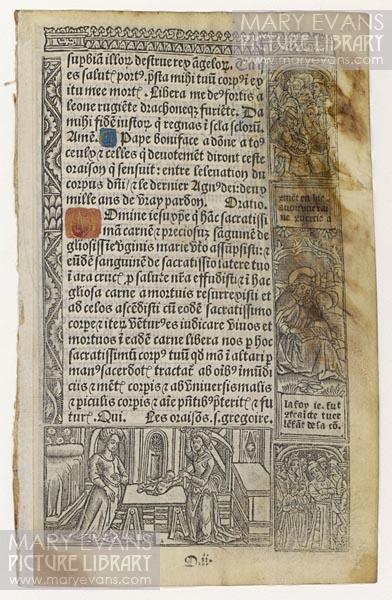 MARY EVANS
PICTURE LIBRARY
suphiā illoꝝ destrue rex āgeloꝝ. Tu
es salutꝭ portꝰ. p̄sta mihi tuū corpꝰ ī ex
itu mee mortꝭ. Libera me de fortis a
leone rugiēte drachoneqꝫ furiēte. Da
mihi fidē iustoꝝ q̄ regnas ī scla scloruꝫ.
Amē. Pape boniface a dōne a to⁹
ceulx ⁊ celles q̄ deuotemēt diront ceste
oraison q̄ sensuit: entre leleuation du
corpus dn̄i ⁊ le dernier Agnꝰ dei: deux
mille ans de vray pardon. Oratio.
Domine iesu xp̄e q̄ hāc sacratissi
mā carnē ⁊ preciosuꝫ sāguinē de
gliosissīe v̓ginis marie vtō assūpsisti: ⁊
eūdē sanguinē de sacratissīo latere tuo
ī ara crucꝭ ꝓ salute nr̄a effudisti: ⁊ ī hac
gl̄iosa carne a mortuis resurrexisti et
ad celos ascēdisti cū eodē sacratissimo
corpe ⁊ iteꝝ vēturꝰ es iudicare viuos et
mortuos ī eadē carne libera nos ꝑ hoc
sacratissimū corpꝰ tuū qd̓ mō ī altari ꝑ
manꝰ sacerdotꝭ tractat̄ ab oībꝰ īmūdi
ciis ⁊ mētꝭ ⁊ corpis ⁊ ab vniuersis malis
⁊ piculis corpis ⁊ aīe p̄ntibꝰ p̄teritꝭ ⁊ fu
turꝭ. Qui. Les oraisōs .s. gregoire.
la foy ie. fut
D.ii.
MARY EVANS
PICTURE LIBRARY
www.maryevans.com